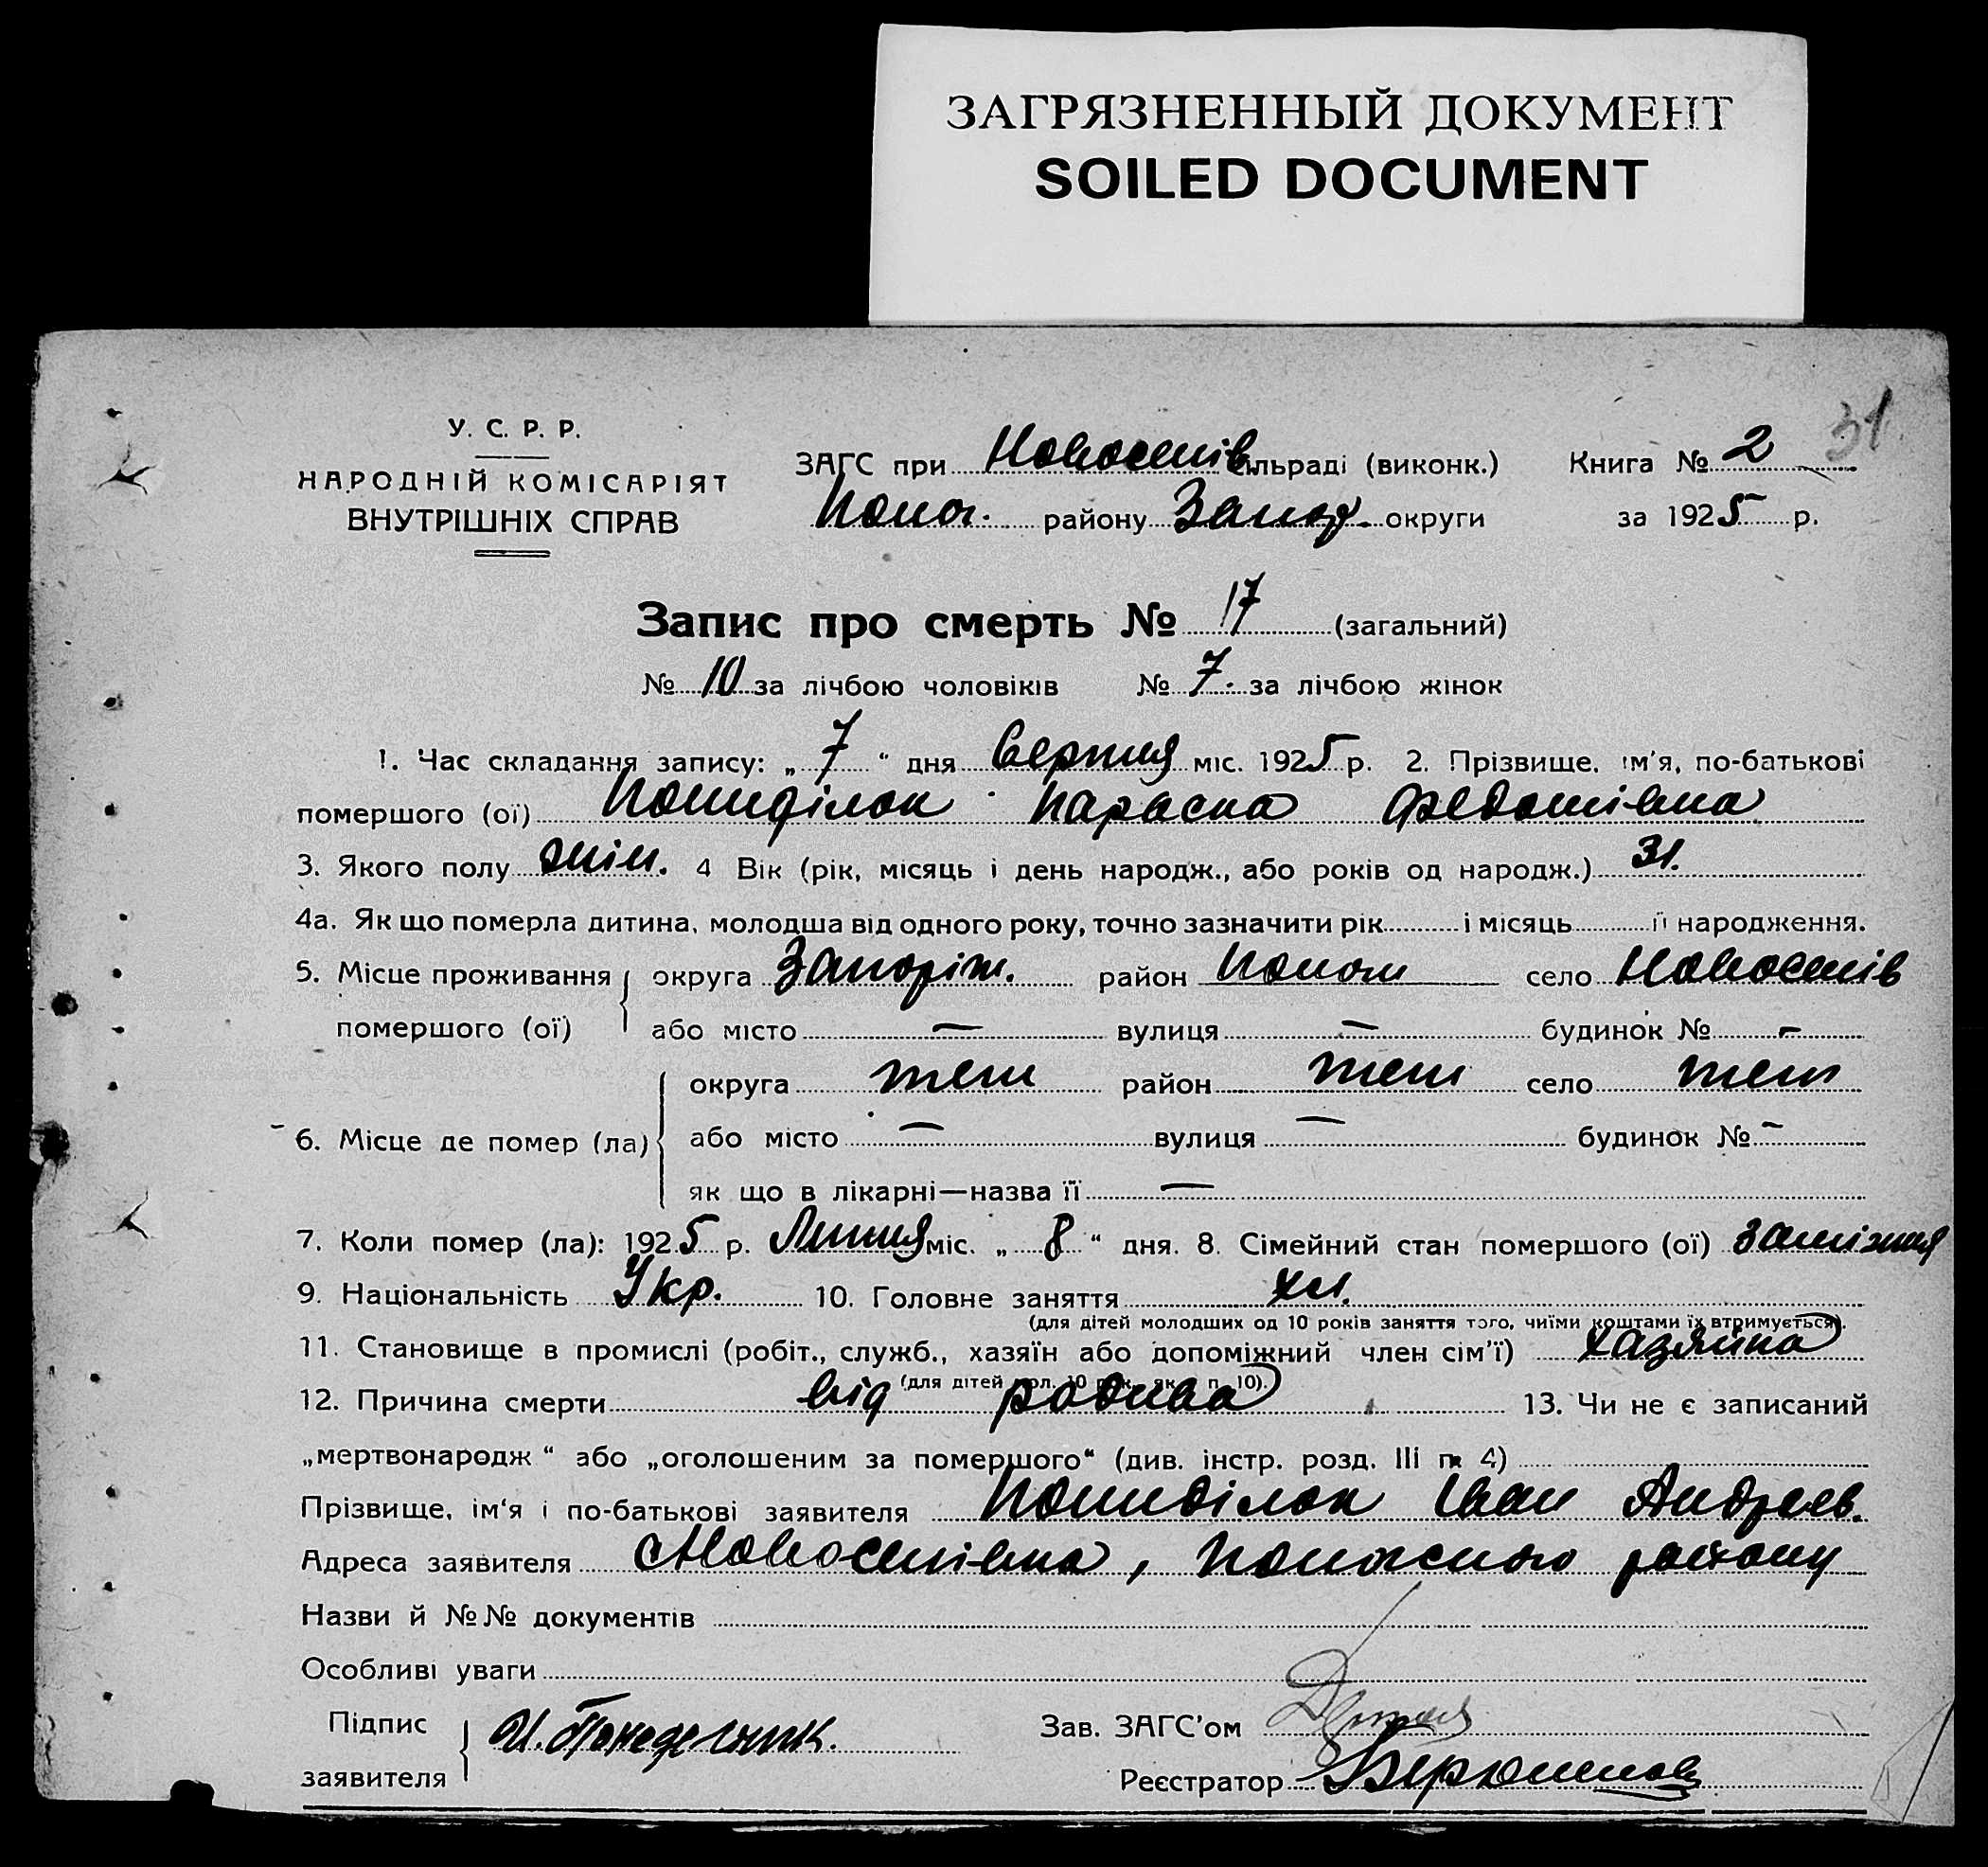 ЗАГРЯЗНЕННЫЙ ДОКУМЕНТ
SOILED DOCUMENT
31
У. С. Р. Р.
НАРОДНІЙ КОМІСАРІЯТ
ВНУТРІШНІХ СПРАВ
ЗАГС при Новоселів. сільраді (виконк.) Книга № 2
району Запор. округи за 1925 р.
Запис про смерть № 17 (загальний)
№ 10 за лічбою чоловіків № 7 за лічбою жінок
1. Час складання запису: „ 7 “ дня Серпня міс. 1925 р. 2. Прізвище, ім'я, по-батькові
помершого (ої) Пониділок Параска Федотівна
3. Якого полу жін. 4 Вік (рік, місяць і день народж., або років од народж.) 31.
4а. Як що померла дитина, молодша від одного року, точно зазначити рік і місяць її народження.
5. Місце проживання округа Запоріж. район село Новоселів
помершого (ої) або місто — вулиця — будинок № -
округа теж район теж село теж
6. Місце де помер (ла) або місто — вулиця — будинок № -
як що в лікарні—назва її —
7. Коли помер (ла): 1925 р. Липня міс. „ 8 “ дня. 8. Сімейний стан помершого (ої) заміжня
9. Національність Укр. 10. Головне заняття хл.
(для дітей молодших од 10 років заняття того, чиїми коштами їх втримується).
11. Становище в промислі (робіт., служб., хазяїн або допоміжний член сім'ї) хазяйка
(для дітей мол. 10 рок. як п. 10).
12. Причина смерти від родива 13. Чи не є записаний
„мертвонародж “ або „оголошеним за помершого“ (див. інстр. розд. III п. 4)
Прізвище, ім'я і по-батькові заявителя Пониділок Іван Андреев.
Адреса заявителя Новоселівка, району
Назви й №№ документів
Особливі уваги
Підпис
заявителя
Зав. ЗАГС'ом
Реєстратор